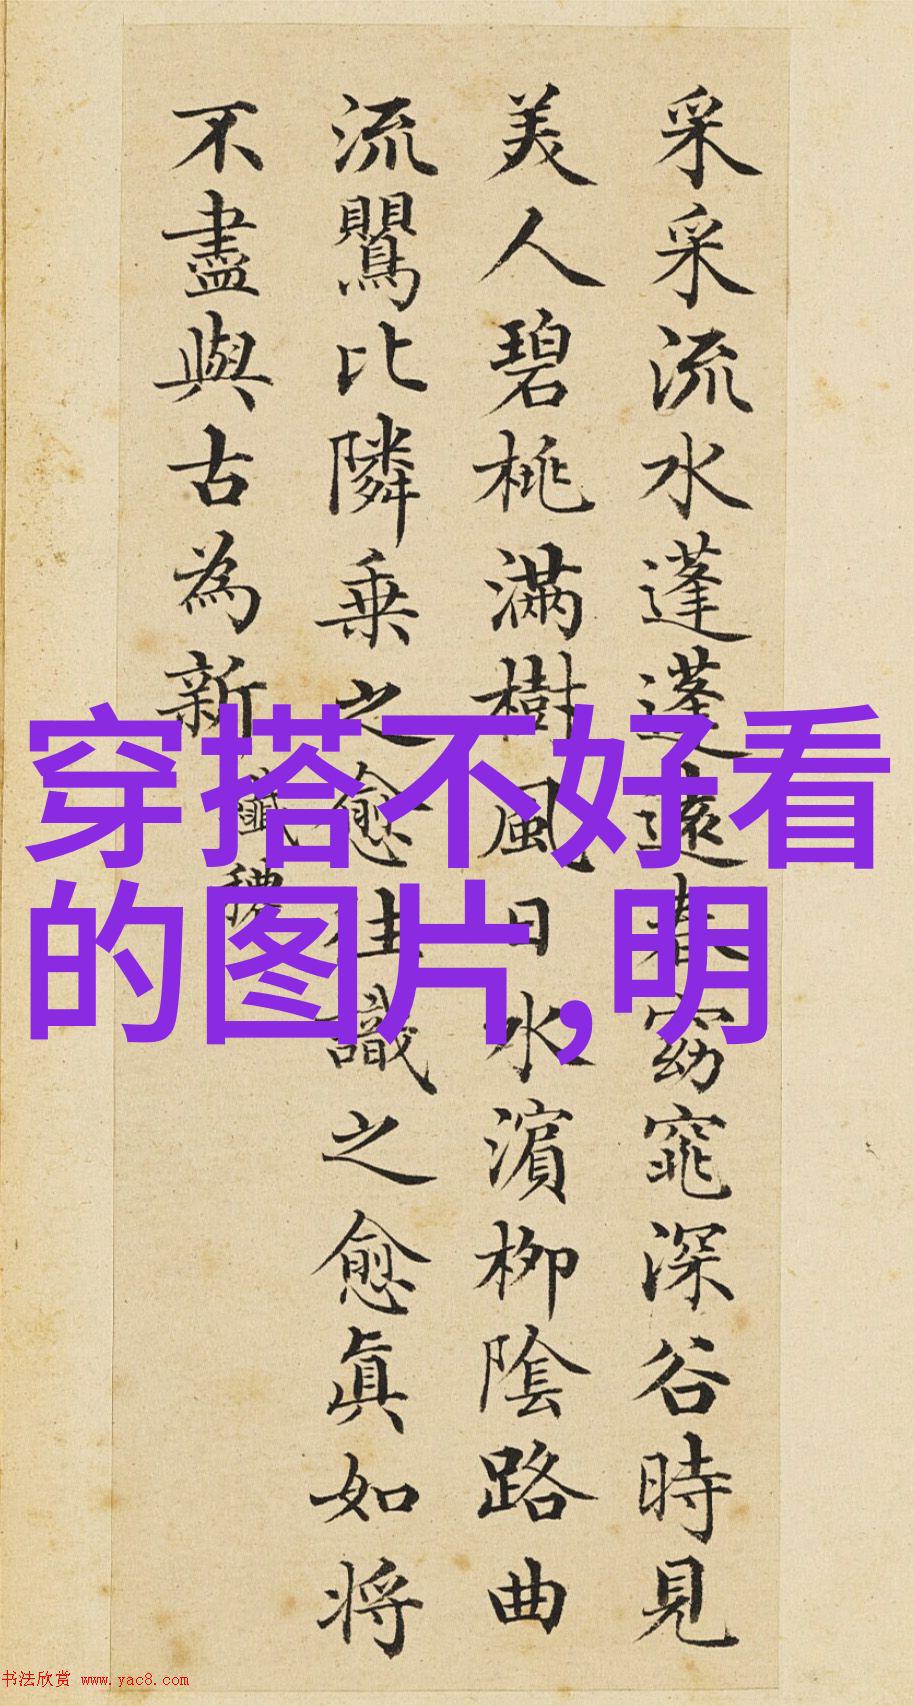 采采流水蓬蓬遠春窈窕深谷時見
美人碧桃滿樹風日水濱柳陰路曲
流鸎比隣乗之愈往識之愈眞如将
不盡與古為新 纖穠
穿搭不好看
的图片,明
书法欣赏 www.yac8.com